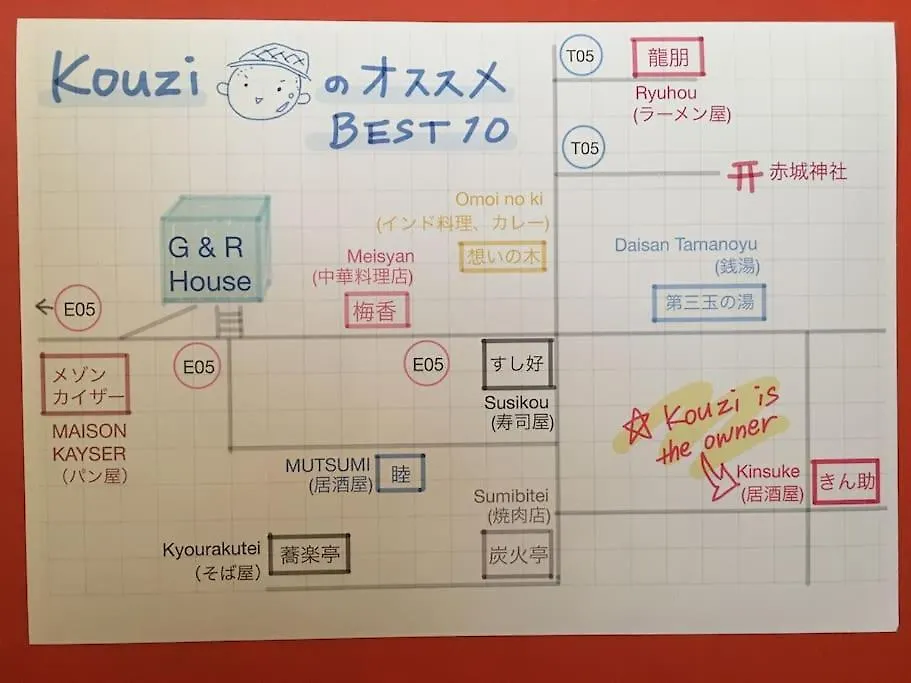 Kouzi のオススメ
BEST 10
T05
龍朋
Ryuhou
(ラーメン屋)
T05
赤城神社
Omoi no ki
(インド料理、カレー)
想いの木
G & R
House
Meisyan
(中華料理店)
梅香
Daisan Tamanoyu
(銭湯)
第三玉の湯
E05
E05
E05
メゾン
カイザー
MAISON
KAYSER
(パン屋)
すし好
Susikou
(寿司屋)
☆ Kouzi is
the owner
MUTSUMI
(居酒屋)
睦
Kinsuke
(居酒屋)
きん助
Sumibitei
(焼肉店)
炭火亭
Kyourakutei
(そば屋)
蕎楽亭